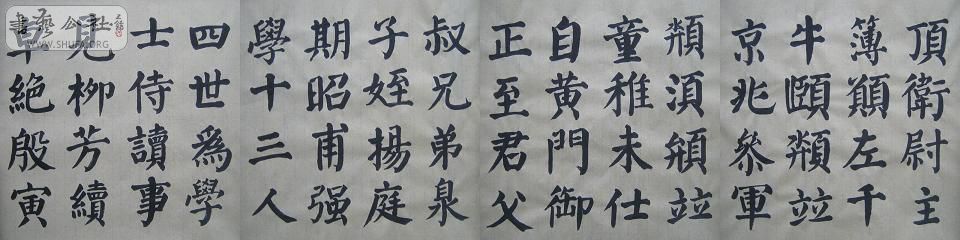 頂衛尉主
簿願左千
牛頤頪竝
京兆參軍
頪須頲竝
童稚未仕
自黃門御
正至君父
叔兄弟泉
子姪揚庭
期昭甫强
學十三人
四世爲學
士侍讀事
見柳芳續
絕殷寅
書藝公社
WWW.SHUFA.ORG